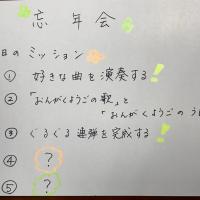 忘年会
日のミッション
① 好きな曲を演奏する!
② 「おんがくようごの歌」と
「おんがくようごのう
③ ぐるぐる連弾を完成する!
④ ?
⑤ ?